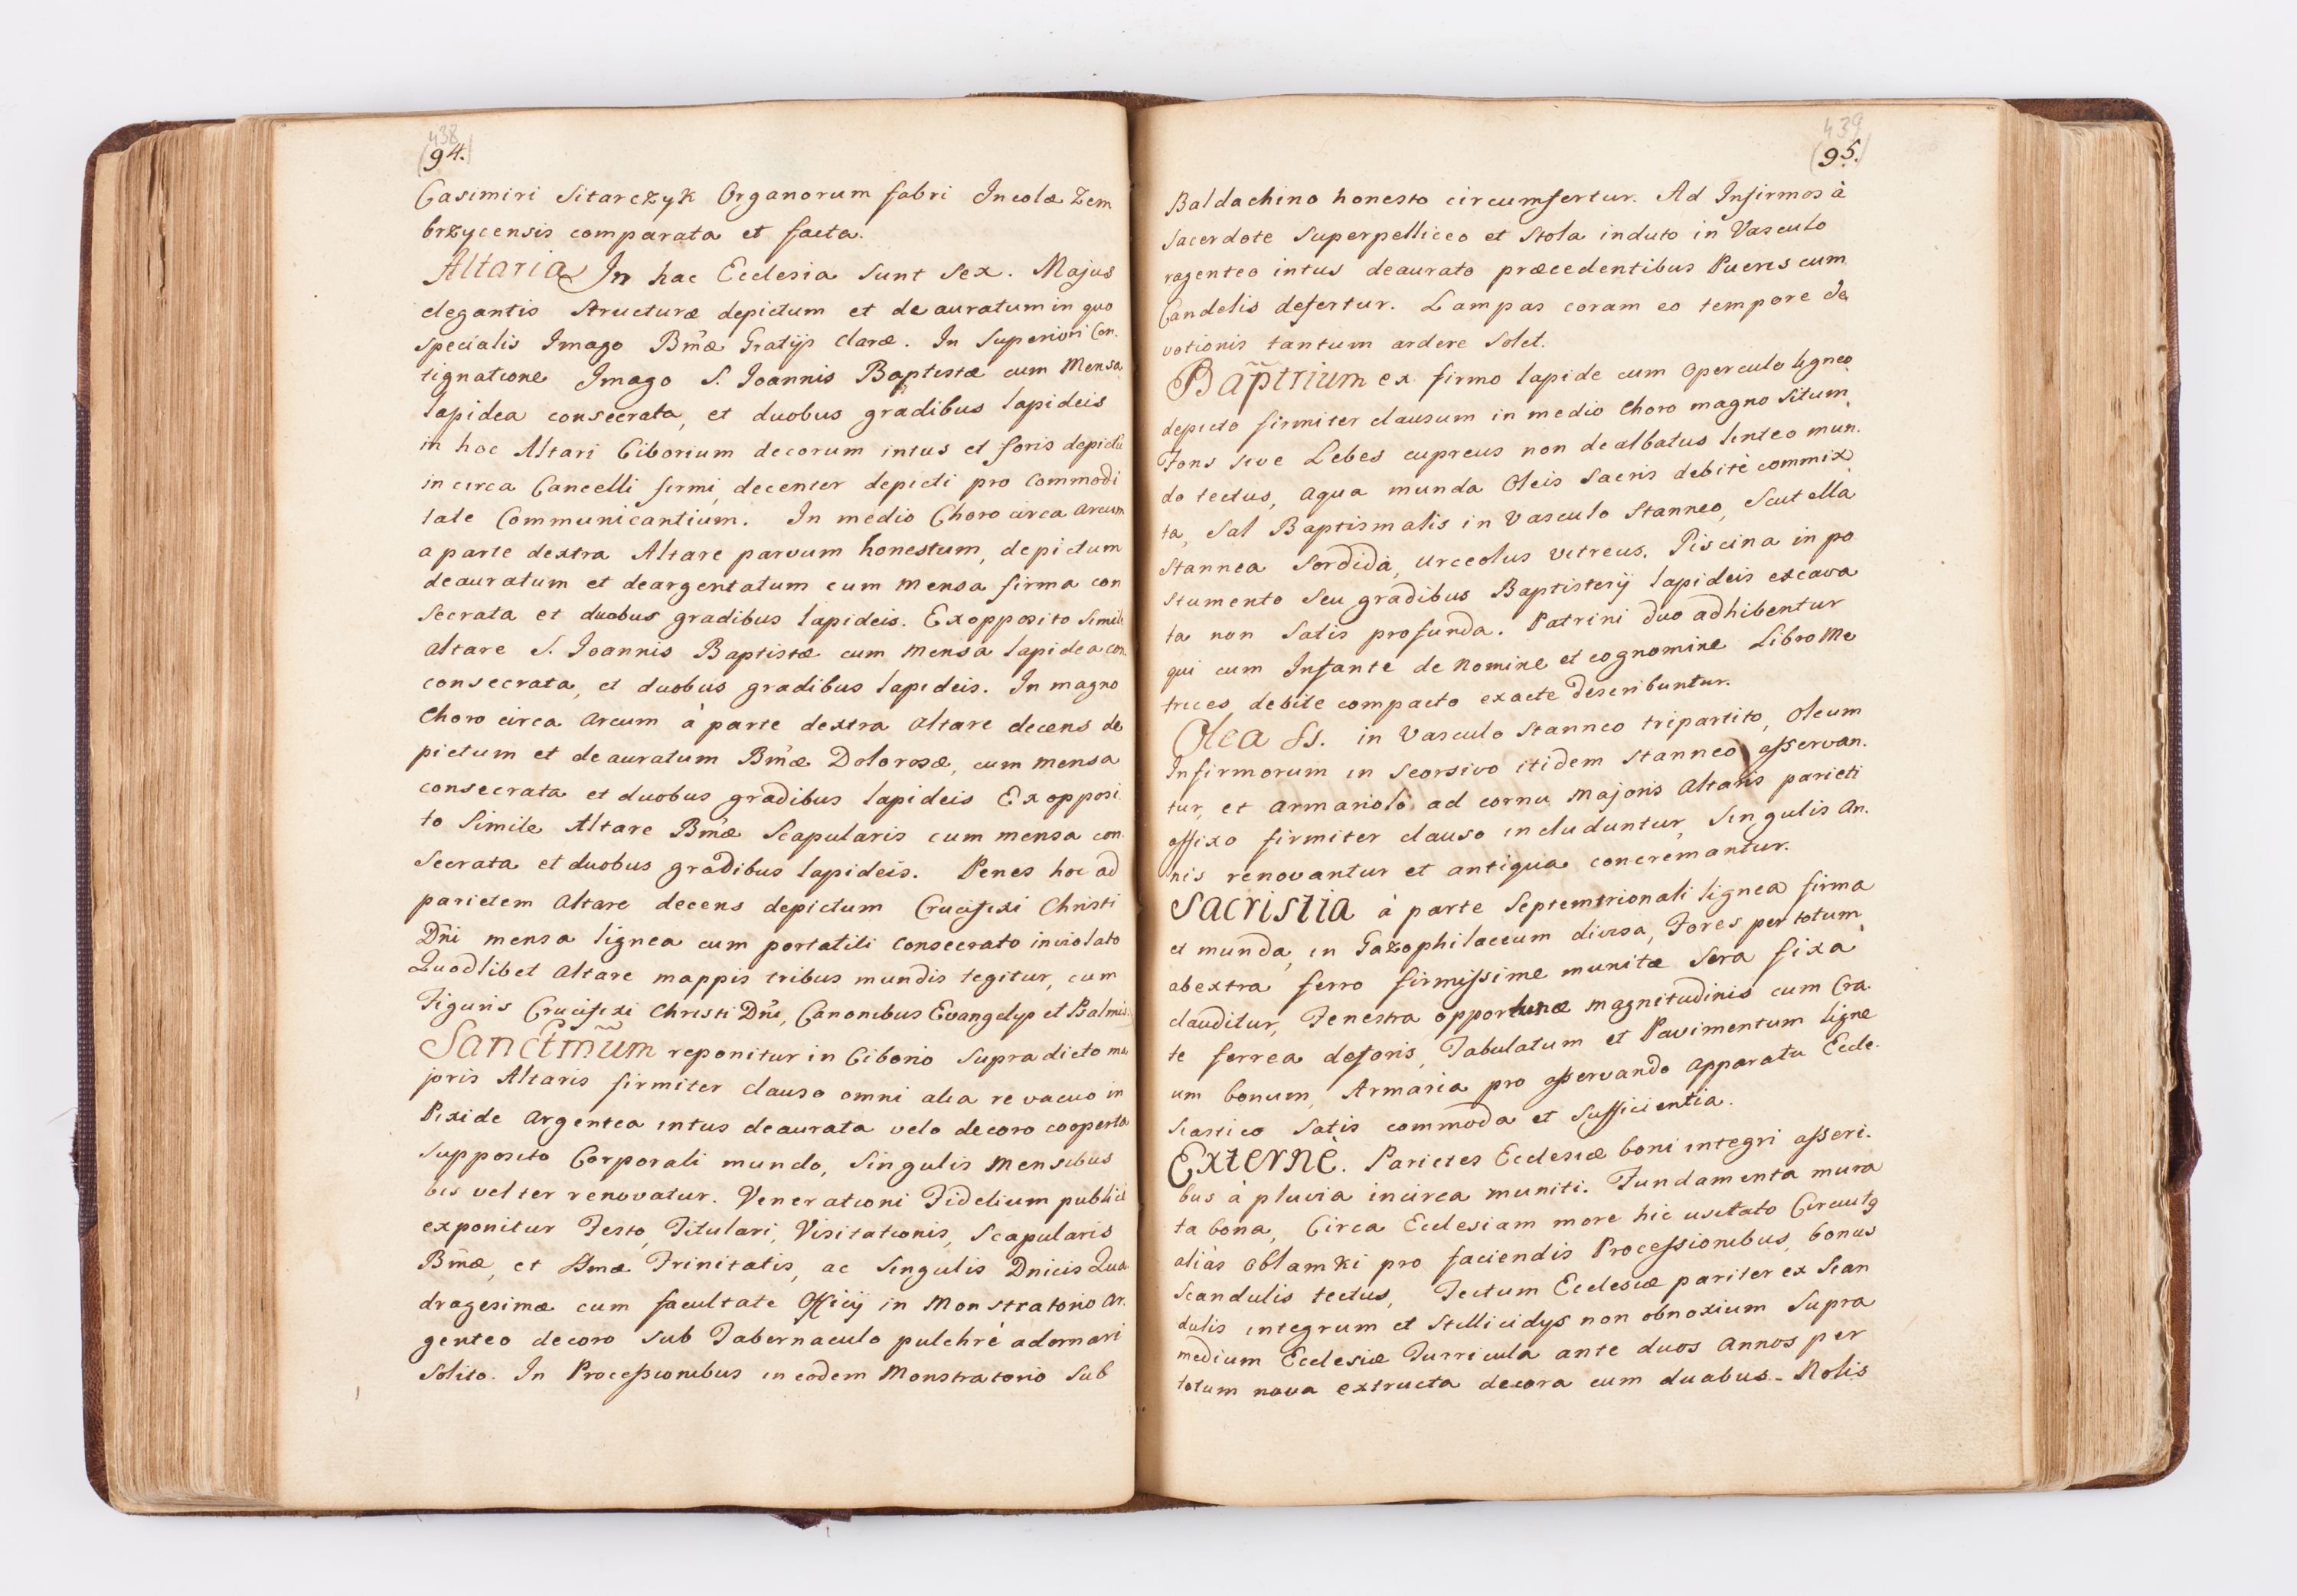 438
(94.)
Casimiri Sitarczyk Organorum fabri Incolæ Zem
brzycensis comparata et facta.
Altaria In hac Ecclesia sunt sex. Majus
elegantis structuræ depictum et deauratum in quo
specialis Imago Bmæ Gratijs claræ. In superiori Con-
tignatione Imago S. Joannis Baptistæ cum Mensa
lapidea consecrata, et duobus gradibus lapideis
in hoc Altari Ciborium decorum intus et foris depictũ
in circa Cancelli firmi, decenter depicti pro Commodi
tate Communicantium. In medio Choro circa arcum
a parte dextra Altare parvum honestum, depictum
deauratum et deargentatum cum mensa firma con
secrata et duobus gradibus lapideis. Exopposito simile
altare S. Joannis Baptistæ cum mensa lapidea con-
consecrata, et duobus gradibus lapideis. In magno
Choro circa arcum à parte dextra altare decens de
pictum et deauratum Bmæ Dolorosæ, cum mensa
consecrata et duobus gradibus lapideis Exopposi
to simile Altare Bmæ Scapularis cum mensa con-
secrata et duobus gradibus lapideis. Penes hoc ad
parietem altare decens depictum Crucifixi Christi
Dñi mensa lignea cum portatili consecrato inviolato
Quodlibet altare mappis tribus mundis tegitur, cum
Figuris Crucifixi Christi Dñi, Canonibus Evangelijs et Psalmis.
Sanctm̃um reponitur in Ciborio supradicto ma
joris Altaris firmiter clauso omni alia re vacuo in
Pixide argentea intus deaurata velo decoro cooperta
supposito Corporali mundo, singulis mensibus
bis vel ter renovatur. Venerationi Fidelium publicè
exponitur Festo, Titulari, Visitationis, Scapularis
Bmæ, et Ssmæ Trinitatis, ac singulis Dnicis Qua
dragesimæ cum facultate Officij in Monstratorio ar-
genteo decoro sub Tabernaculo pulchrè adornari
solito. In Processionibus in eodem Monstratorio sub
439
(95.)
Baldachino honesto circumfertur. Ad Infirmos à
sacerdote superpelliceo et stola induto in Vasculo
ragenteo intus deaurato præcedentibus Pueris cum
Candelis defertur. Lampas coram eo tempore de
votionis tantum ardere solet.
Bap̃trium ex firmo lapide cum operculo ligneo
depicto firmiter clausum in medio Choro magno situm.
Fons sive Lebes cupreus non dealbatus linteo mun-
do tectus, aqua munda Oleis sacris debitè commix
ta, sal Baptismalis in Vasculo stanneo, scutella
stannea sordida, urceolus vitreus. Piscina in po
stumento seu gradibus Baptisterij lapideis excava
ta non satis profunda. Patrini duo adhibentur
qui cum Infante de nomine et cognomine Libro Me
trices, debite compacto exacte describuntur.
Olea SS. in Vasculo stanneo tripartito, Oleum
Infirmorum in seorsivo itidem stanneo asservan-
tur, et armariolo ad cornu majoris altaris parieti
affixo firmiter clauso includuntur, singulis an-
nis renovantur et antiqua concremantur.
Sacristia à parte septemtrionali lignea firma
et munda, in Gazophilaceum divisa, Fores per totum
abextra ferro firmissime munitæ sera fixa
clauditur, Fenestra opportunæ magnitudinis cum Cra-
te ferrea deforis, Tabulatum et Pavimentum ligne
um bonum, Armaria pro asservando apparatu Eccle-
siastico satis commoda et sufficientia.
Externè. Parietes Ecclesiæ boni integri asseri-
bus à pluvia incirca muniti. Fundamenta mura
ta bona, Circa Ecclesiam more hic usitato Circuitq
aliàs oblamki pro faciendis Processionibus, bonus
scandulis tectus, Tectum Ecclesiæ pariter ex scan
dulis integrum et stillicidijs non obnoxium supra
medium Ecclesiæ Turricula ante duos annos per
totum nova extructa decora cum duabus Nolis